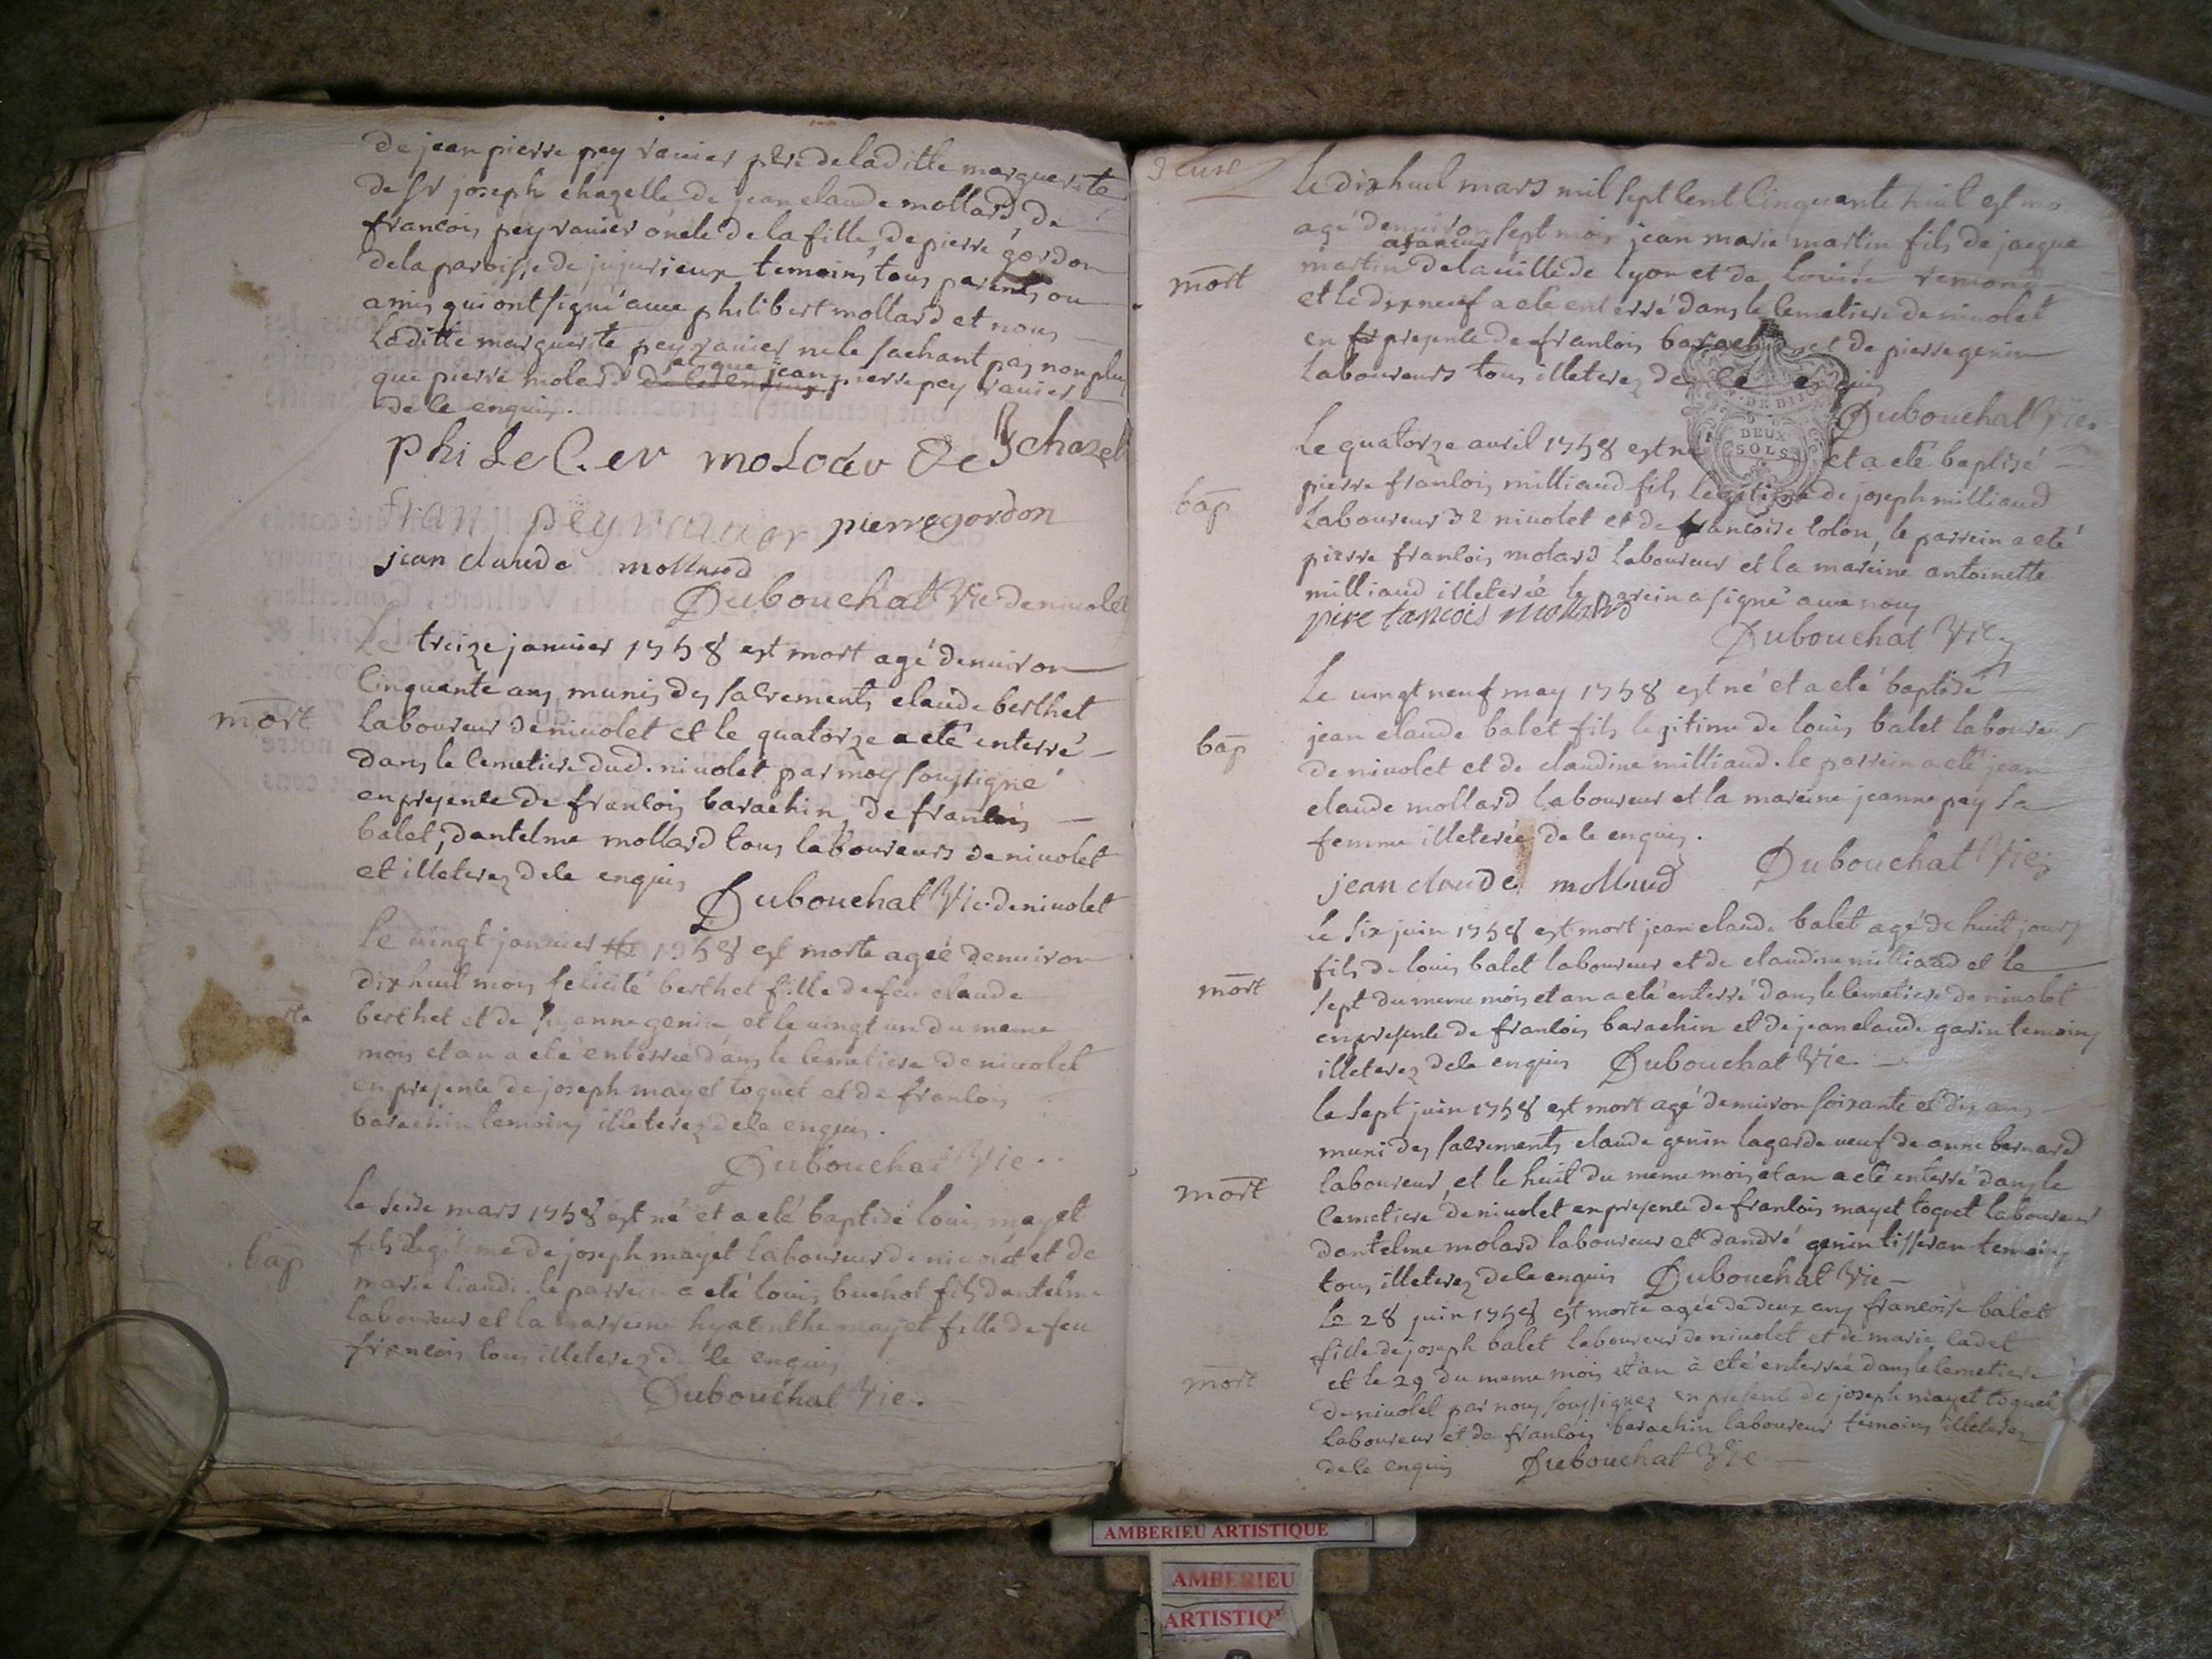 de jean pierre pey ravier pere de laditte marguerite
de sr joseph chazelle de jean claude mollard de
francois pey ravier oncle de la fille, de pierre gordon
de la paroisse de jujurieux temoins tous parents ou
amis qui ont signé avec philibert mollard et nous
laditte marguerite pey ravier ne le sachant pas non plus
que pierre molard jean pierre pey ravier
de ce enquis.
chazel
fran peyravier pierre gordon
jean claude mollard
Dubouchat Vic. de nivolet
Le treize janvier 1758 est mort agé denviron
cinquante ans, munis des sacrements claude berthet
mort
laboureur de nivolet et le quatorze a eté enterré
dans le cemetiere dud. nivolet par moy soussigné
en presence de francois barachin, de francois
balet, dantelme mollard tous laboureurs de nivolet
et illeterez de ce enquis Dubouchat Vic. de nivolet
le vingt janvier 1758 est morte agée denviron
dix huit mois felicité berthet fille de feu claude
morte
berthet et de suzanne genin et le vingt un du meme
mois et an a eté enterrée dans le cemetiere de nivolet
en presence de joseph mayet toquet et de francois
barachin temoins illeterez de ce enquis.
Dubouchat Vic.
le seize mars 1758 est né et a eté baptisé louis mayet
bap
fils legitime de joseph mayet laboureur de nivolet et de
marie liaudi. le parrein a eté louis buchot fils dantelme
laboureur et la marreine hyacinthe mayet fille de feu
francois tous illeterez de ce enquis
Dubouchat Vic.
le dix huit mars mil sept cent cinquante huit est mo
agé denviron sept mois jean marie martin fils de jacque
afaneur
mort
martin de la ville de lyon et de louise remond
et le dix neuf a eté enterré dans le cemetiere de nivolet
en presence de francois barachin et de pierre genin
laboureurs tous illeterez de ce enquis
Dubouchat Vic.
DE DIJON
DEUX
SOLS
le quatorze avril 1758 est né et a eté baptisé
bap
pierre francois milliaud fils legitime de joseph milliaud
laboureur de nivolet et de francoise colon, le parrein a eté
pierre francois molard laboureur et la mareine antoinette
milliaud illeterée le parein a signé avec nous
pire fancois mollard
Dubouchat Vic.
le vingt neuf may 1758 est né et a eté baptisé
bap
jean claude balet fils legitime de louis balet laboureur
de nivolet et de claudine milliaud. le parrein a eté jean
claude mollard laboureur et la mareine jeanne pey sa
femme illeterée de ce enquis.
jean claude mollard Dubouchat Vic.
le six juin 1758 est mort jean claude balet agé de huit jours
mort
fils de louis balet laboureur et de claudine milliaud et le
sept du meme mois et an a eté enterré dans le cemetiere de nivolet
en presence de francois barachin et de jean claude garin temoins
illeterez de ce enquis Dubouchat Vic.
le sept juin 1758 est mort agé denviron soixante et dix ans
muni des sacrements claude genin lagarde veuf de anne bernard
mort
laboureur, et le huit du meme mois et an a eté enterré dans le
cemetiere de nivolet en presence de francois mayet toquet laboureur
dantelme molard laboureur et dandré genin tisseran temoins
tous illeterez de ce enquis Dubouchat Vic
le 28 juin 1758 est morte agée de deux ans francoise balet
fille de joseph balet laboureur de nivolet et de marie cadet
mort
et le 29 du meme mois et an à eté enterrée dans le cemetiere
de nivolet par nous soussignez en presence de joseph mayet toquet
laboureur et de francois barachin laboureur temoins illeterez
de ce enquis Dubouchat Vic
AMBERIEU ARTISTIQUE
AMBERIEU
ARTISTIQ